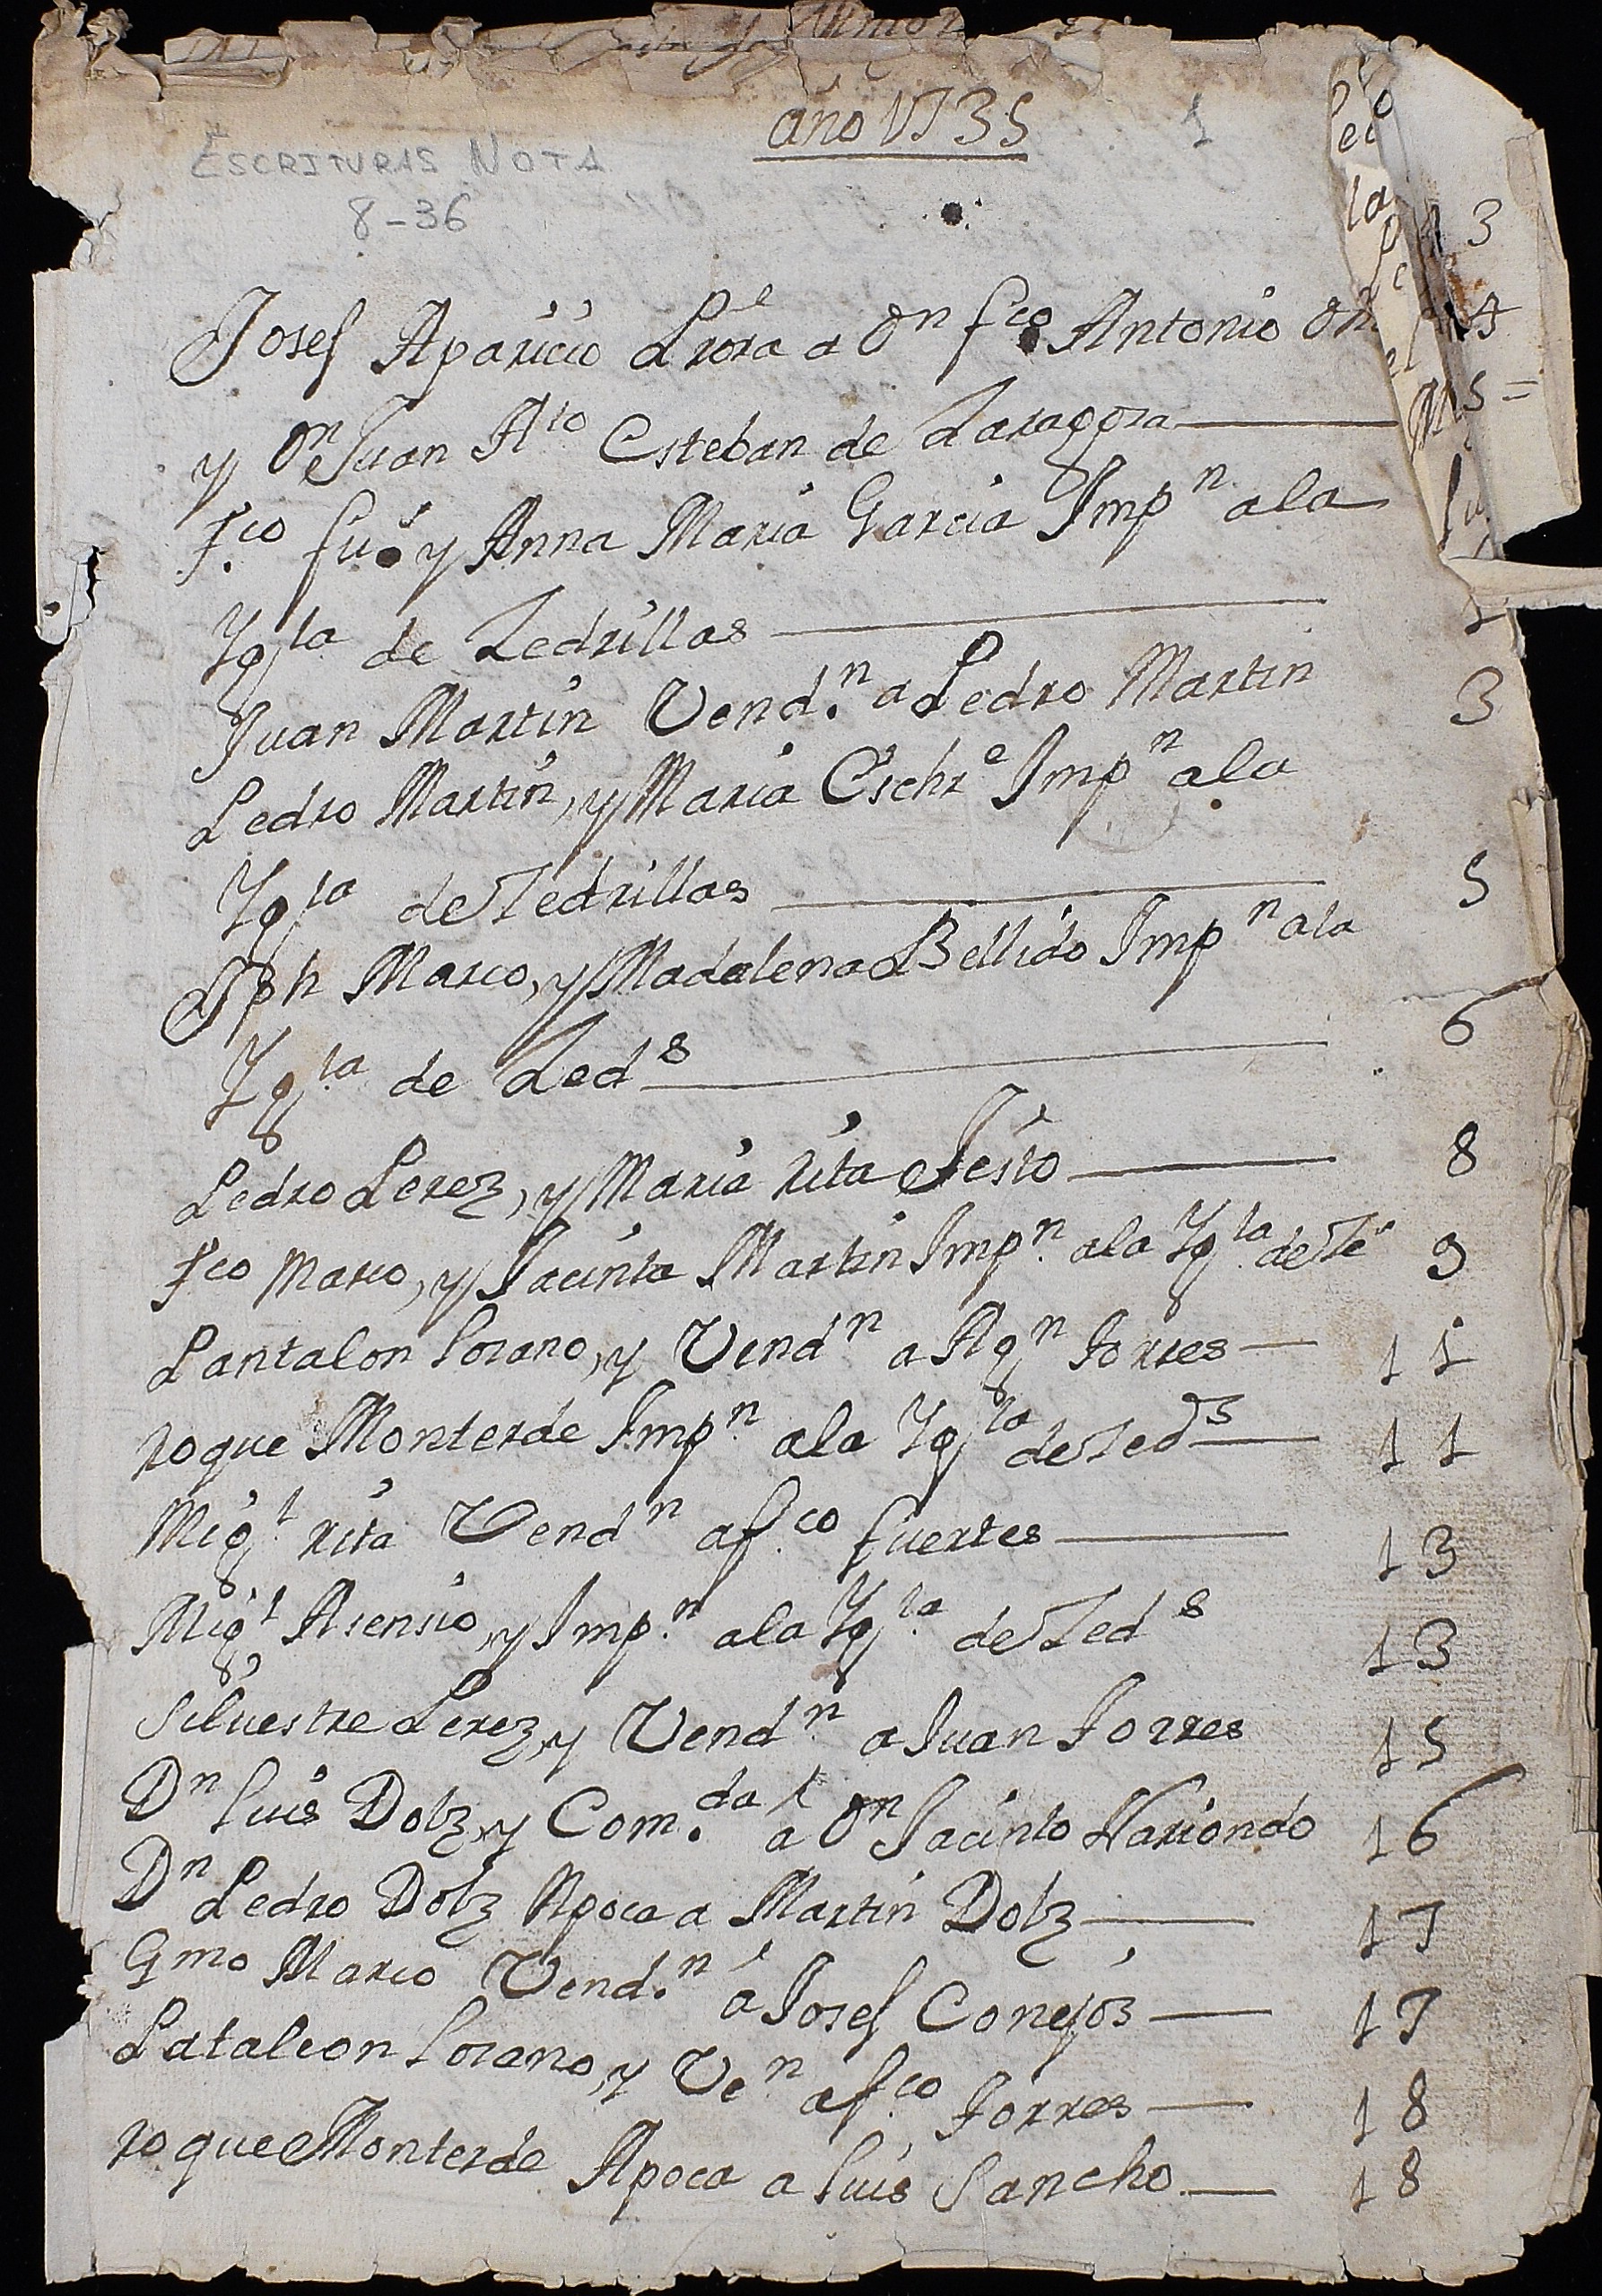 año 1735 1
ESCRITURAS NOTA
8-36
Josef Aparicio a Dn fco Antonio
y Dn Juan Ato Esteban de Zaragoza
Fco fue y Anna Maria Garcia Impn ala
Ygla de Zedrillas 1
Juan Martin Vend.n a Pedro Martin 3
Pedro Martin, y Maria Eschre Impn ala
Ygla de Zedrillas 5
Jph Marco, y Madalena Bellido Impn ala
Ygla de Zeds 6
Pedro Perez, y Maria Rita Testo 8
Fco Marco, y Jacinta Martin Impn. ala Ygla de Ze 9
Pantalon Lozano, y Vendn a Agn Torres 11
Roque Monterde Impn. ala Ygla de Zeds 11
Migl Rita Vendn a fco fuertes 13
Migl Asensio, y Imp.n ala Ygla de Zeds 13
Silvestre Perez, y Vendn a Juan Torres 15
Dn Luis Dolz, y Com.da a Dn Jacinto Nariondo 16
Dn Pedro Dolz Apoca a Martin Dolz 17
Gmo Marco Vend.n a Josef Conejos 17
Pataleon Lozano, y Ven a fco Torres 18
Roque Monterde Apoca a Luis Sancho 18